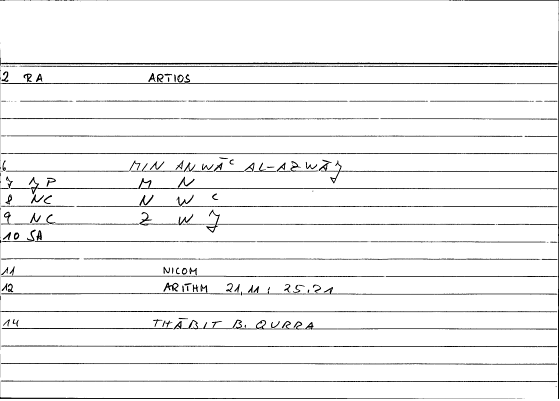 2 RA ARTIOS
6 MIN ANWĀᶜ AL-AZWĀJ
7 JP M N
8 NC N W ᶜ
9 NC Z W J
10 SA
11 NICOM
12 ARITHM 21,11 ; 25.21
14 THĀBIT B. QURRA